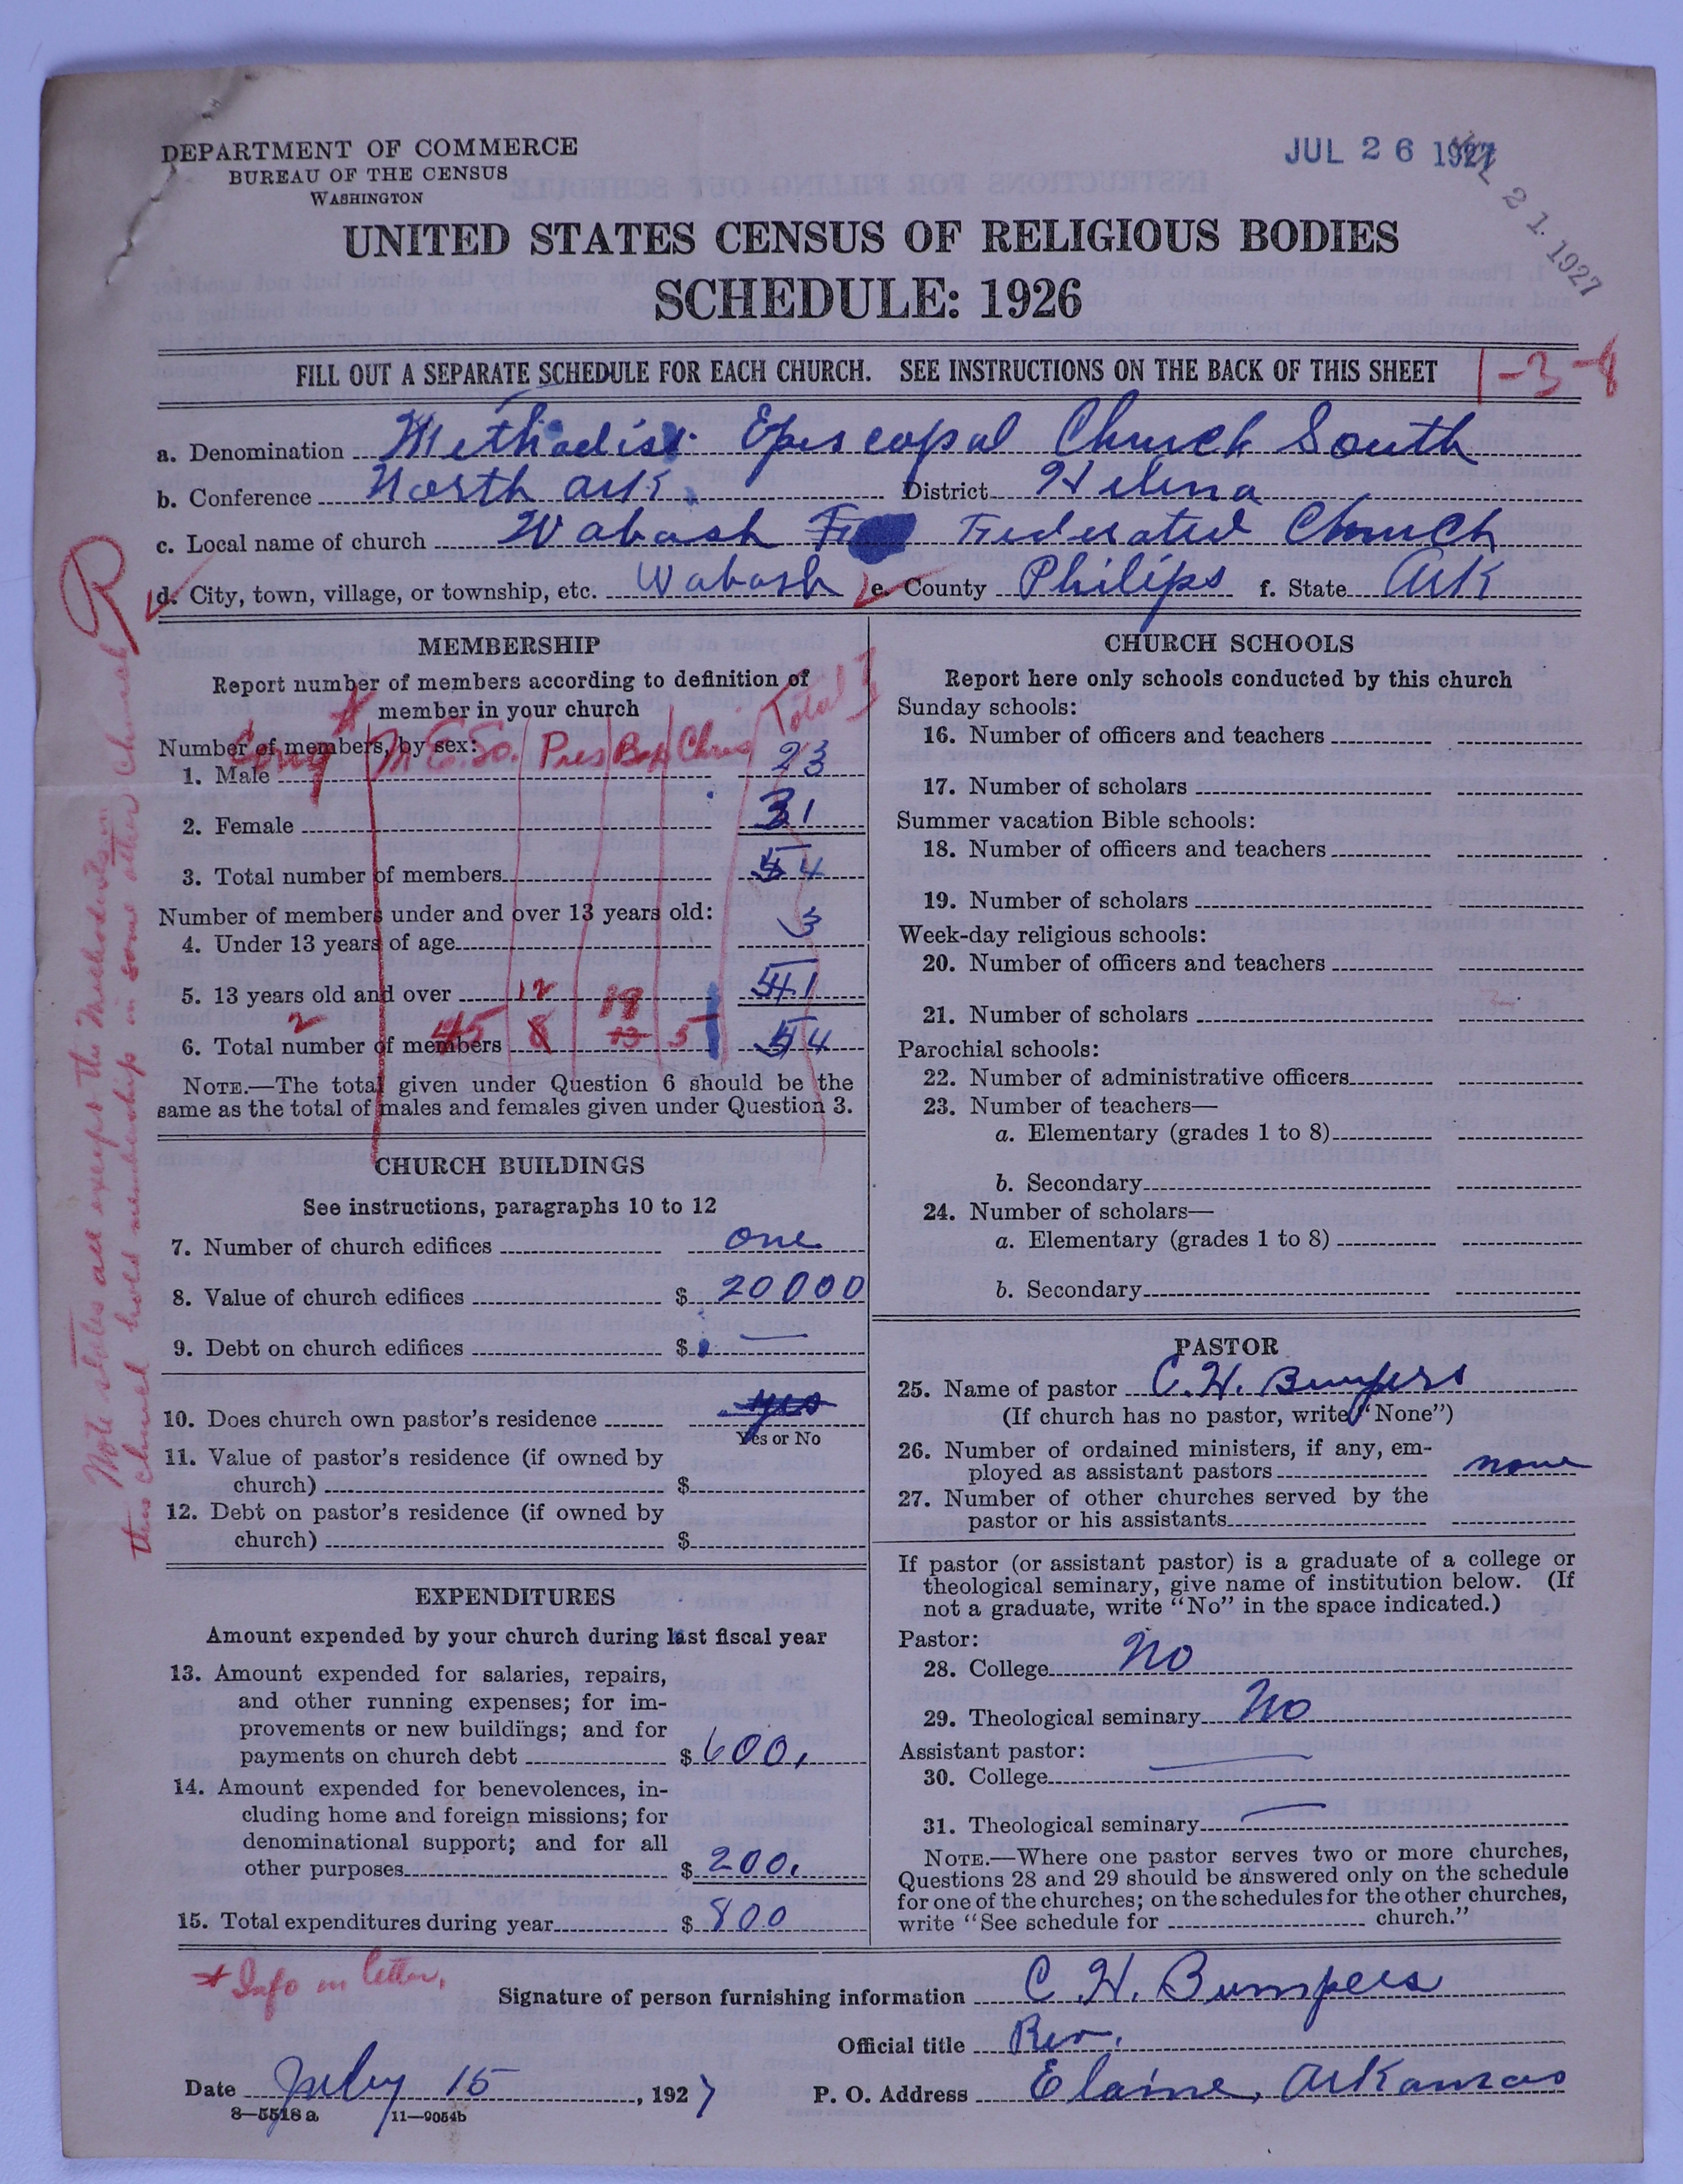 DEPARTMENT OF COMMERCE
BUREAU OF THE CENSUS
WASHINGTON
JUL 26 1927
JUL 21 1927
UNITED STATES CENSUS OF RELIGIOUS BODIES
SCHEDULE: 1926
FILL OUT A SEPARATE SCHEDULE FOR EACH CHURCH. SEE INSTRUCTIONS ON THE BACK OF THIS SHEET
1-3-8
a. Denomination Methodist Episcopal Church South
b. Conference North Ark. District Helena
c. Local name of church Wabash Federated Church
d. City, town, village, or township, etc. Wabash e. County Philips f. State Ark
R
Note states all except the Methodists in
this church hold membership in some other Church
MEMBERSHIP
Report number of members according to definition of
member in your church
Number of members, by sex:
* Cong M.E.So. Pres Bap Chris Total
1. Male 23
2. Female 31
3. Total number of members 54
Number of members under and over 13 years old:
4. Under 13 years of age 3
5. 13 years old and over 12 19 51
6. Total number of members 2 45 8 13 5 54
NOTE.—The total given under Question 6 should be the
same as the total of males and females given under Question 3.
CHURCH BUILDINGS
See instructions, paragraphs 10 to 12
7. Number of church edifices one
8. Value of church edifices $ 20000
9. Debt on church edifices $ —
10. Does church own pastor's residence yes
Yes or No
11. Value of pastor's residence (if owned by
church) $
12. Debt on pastor's residence (if owned by
church) $
EXPENDITURES
Amount expended by your church during last fiscal year
13. Amount expended for salaries, repairs,
and other running expenses; for im-
provements or new buildings; and for
payments on church debt $ 600.
14. Amount expended for benevolences, in-
cluding home and foreign missions; for
denominational support; and for all
other purposes $ 200.
15. Total expenditures during year $ 800
CHURCH SCHOOLS
Report here only schools conducted by this church
Sunday schools:
16. Number of officers and teachers
17. Number of scholars
Summer vacation Bible schools:
18. Number of officers and teachers
19. Number of scholars
Week-day religious schools:
20. Number of officers and teachers
21. Number of scholars
Parochial schools:
22. Number of administrative officers
23. Number of teachers—
a. Elementary (grades 1 to 8)
b. Secondary
24. Number of scholars—
a. Elementary (grades 1 to 8)
b. Secondary
PASTOR
25. Name of pastor C. H. Bumpers
(If church has no pastor, write "None")
26. Number of ordained ministers, if any, em-
ployed as assistant pastors none
27. Number of other churches served by the
pastor or his assistants
If pastor (or assistant pastor) is a graduate of a college or
theological seminary, give name of institution below. (If
not a graduate, write "No" in the space indicated.)
Pastor:
28. College No
29. Theological seminary No
Assistant pastor:
30. College —
31. Theological seminary —
NOTE.—Where one pastor serves two or more churches,
Questions 28 and 29 should be answered only on the schedule
for one of the churches; on the schedules for the other churches,
write "See schedule for church."
* Info in letter.
Signature of person furnishing information C. H. Bumpers
Official title Rev.
Date July 15, 1927 P. O. Address Elaine, Arkansas
8—5518 a 11—9054b